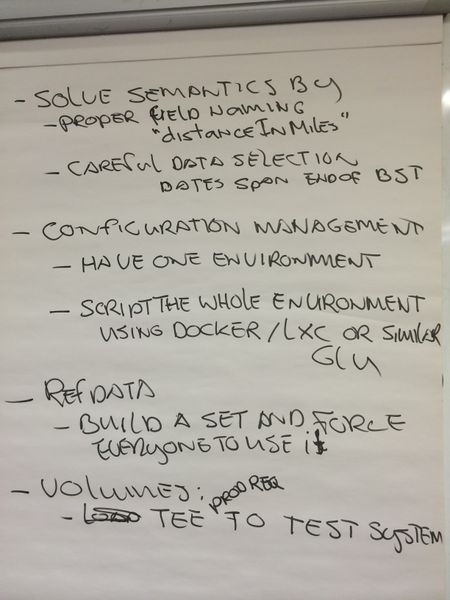 - SOLVE SEMANTICS BY
- PROPER FIELD NAMING
"distanceInMiles"
- CAREFUL DATA SELECTION
DATES SPAN END OF BST
- CONFIGURATION MANAGEMENT
- HAVE ONE ENVIRONMENT
- SCRIPT THE WHOLE ENVIRONMENT
USING DOCKER / LXC OR SIMILAR
GLU
- REFDATA
- BUILD A SET AND FORCE
EVERYONE TO USE it
- VOLUMES:
PROD REQ
- TEE TO TEST SYSTEM